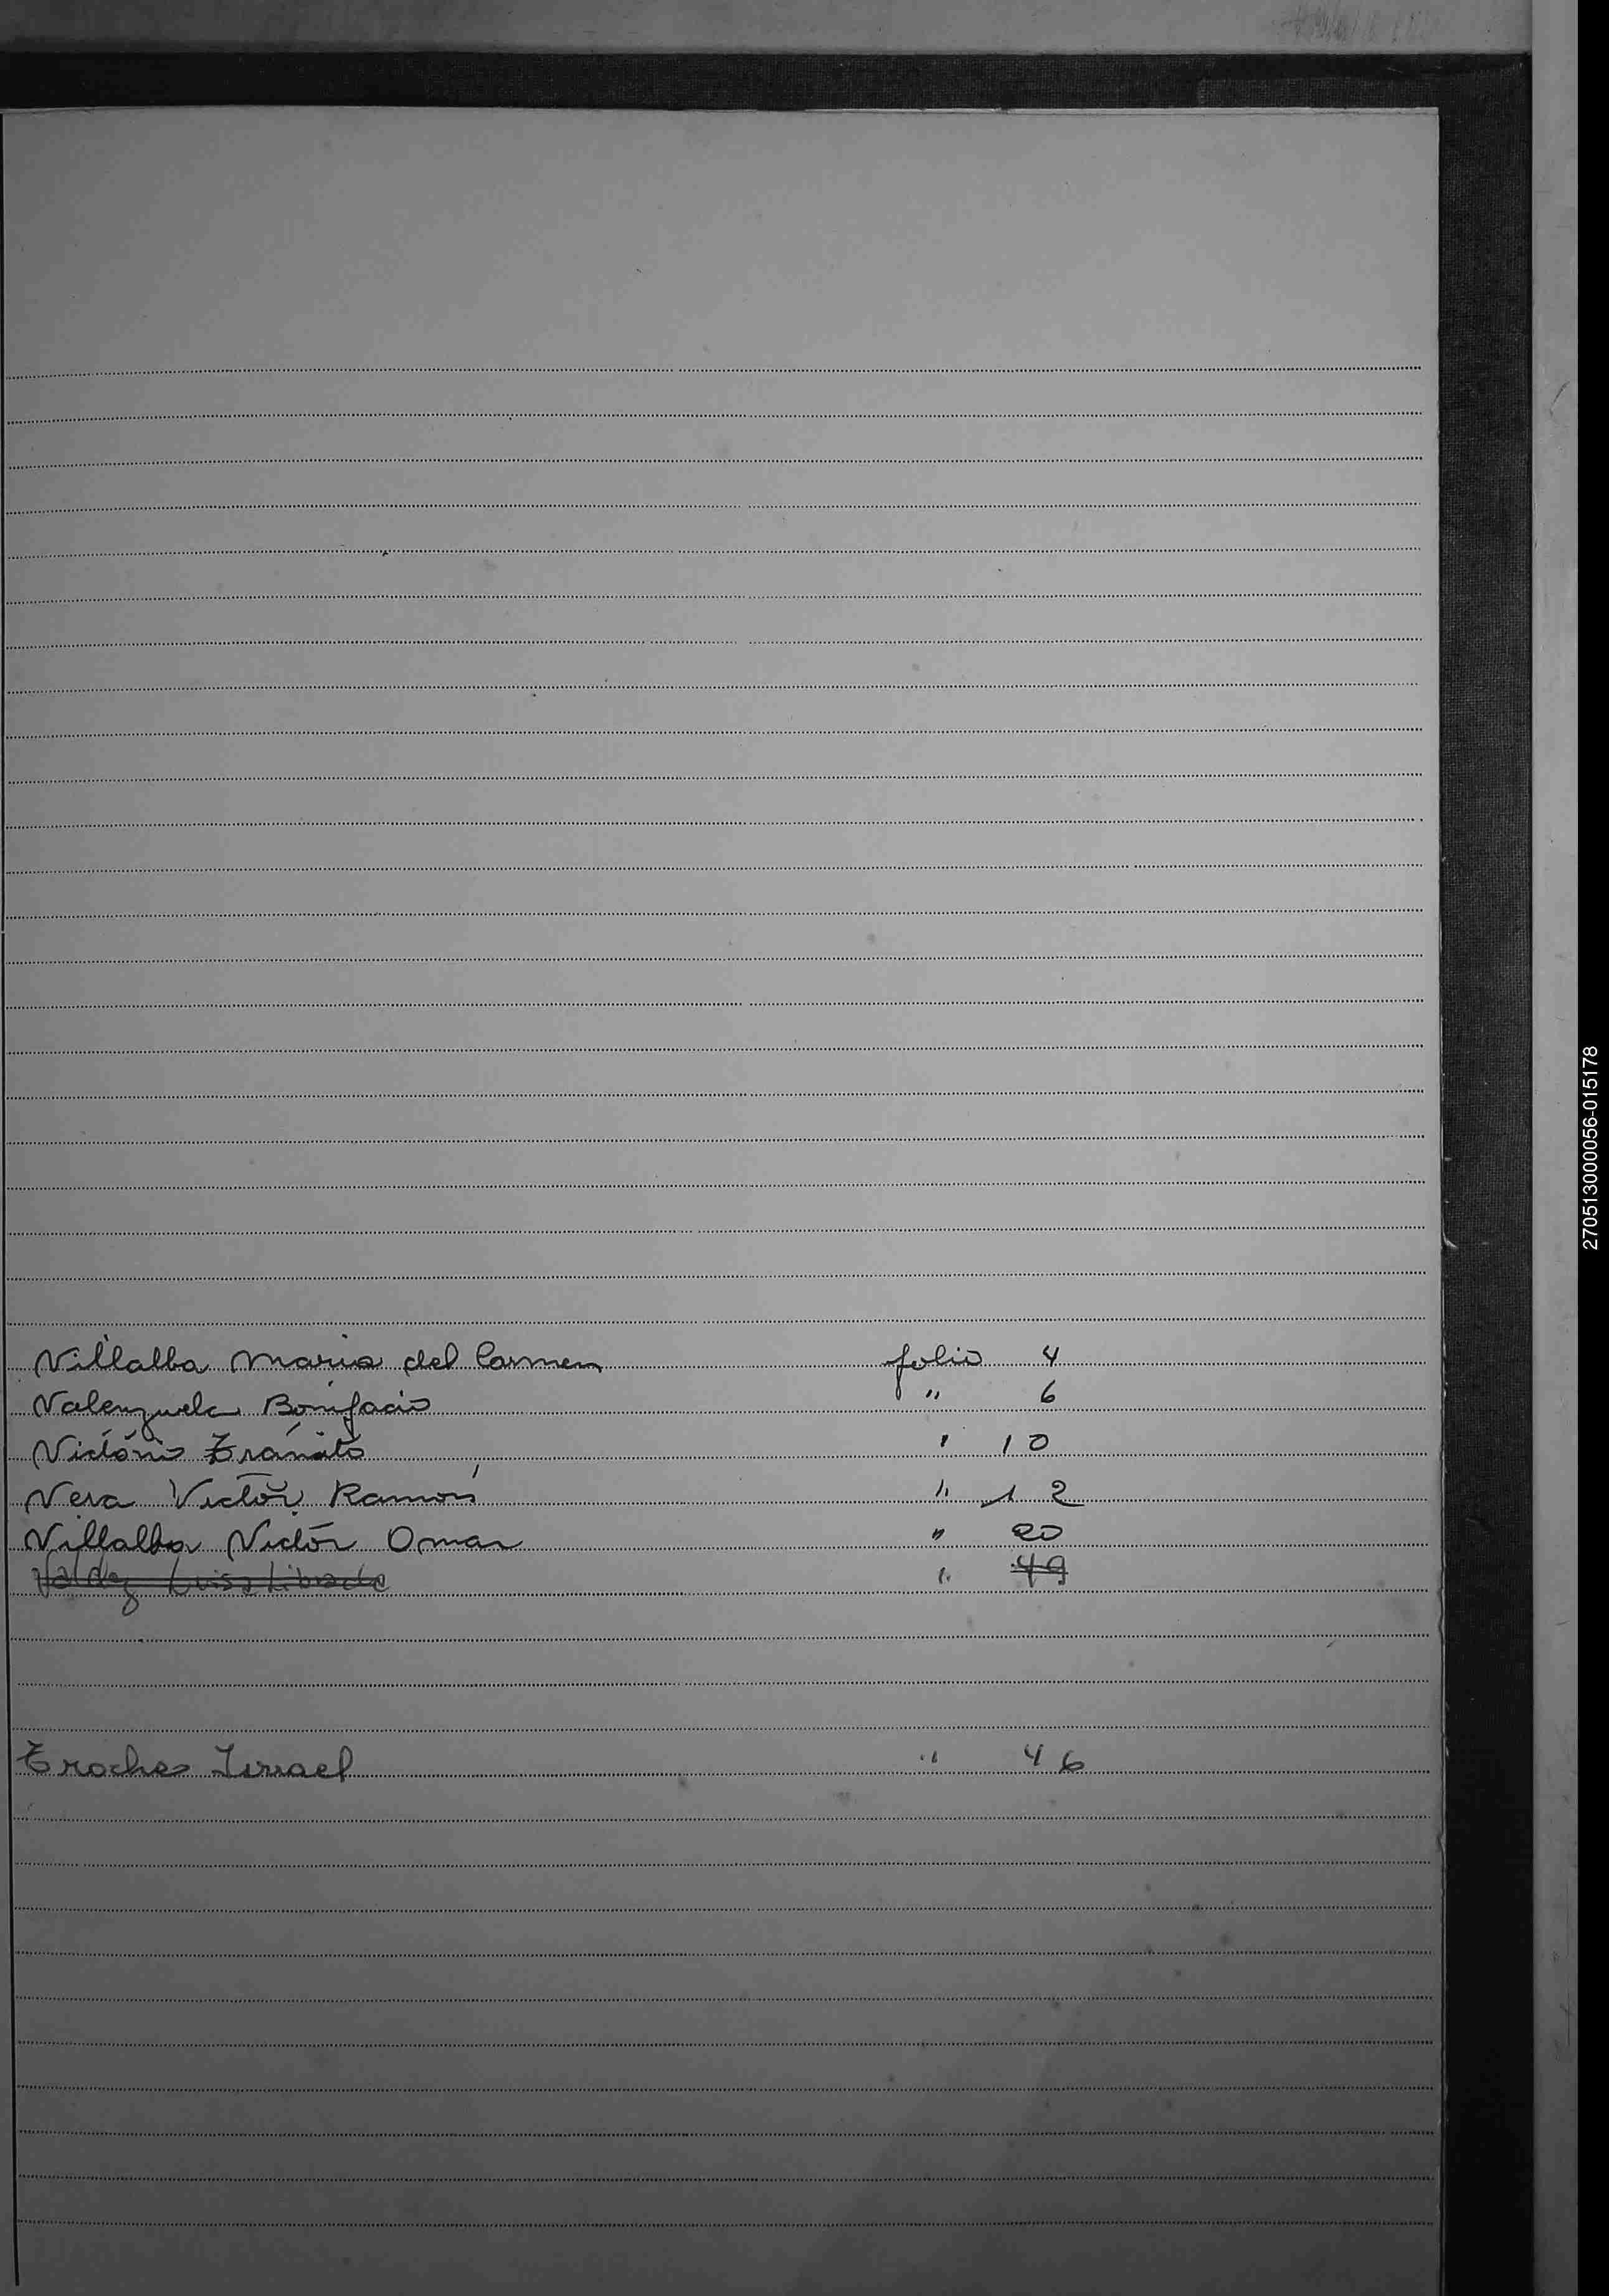 Villalba Maria del Carmen folio 4
Valenzuela Bonifacio " 6
Victório Tránsito " 10
Vera Victór Ramón " 12
Villalba Victór Omar " 20
Valdez Luisa Librada " 49
Zroches Isrrael " 46
270513000056-015178